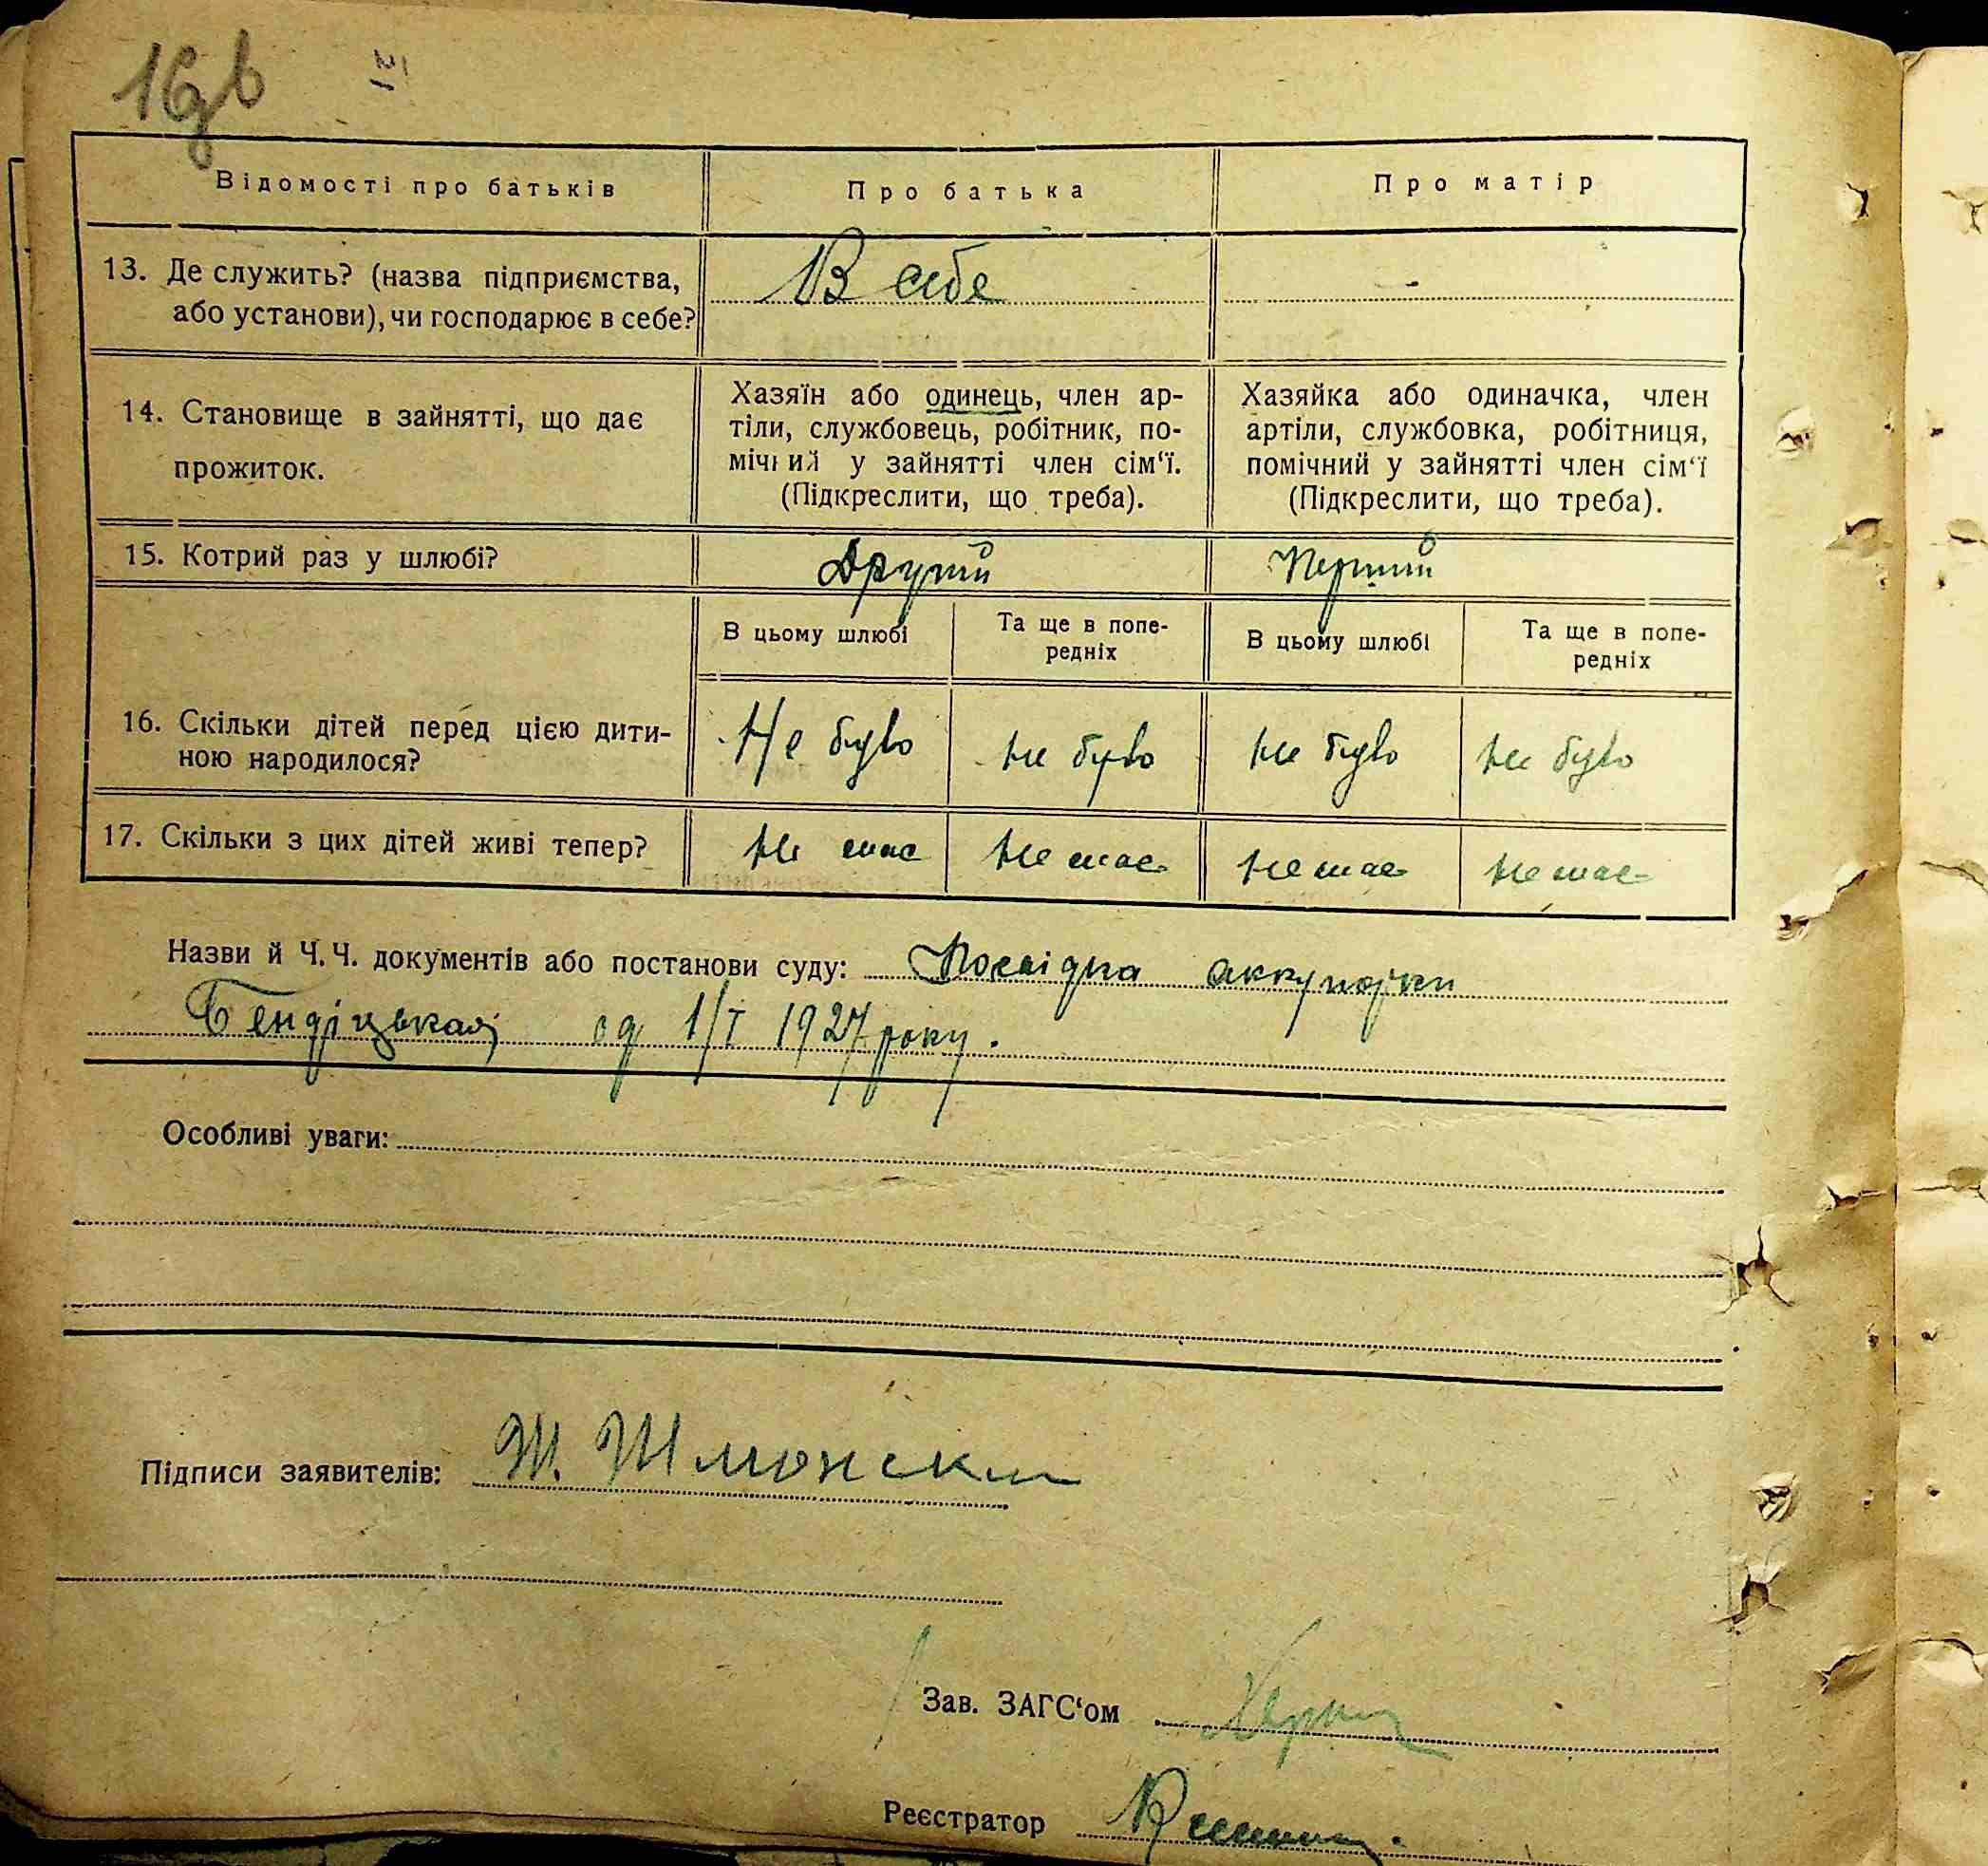 16зв
Відомості про батьків
Про батька
Про матір
13. Де служить? (назва підприємства,
або установи), чи господарює в себе?
В себе
-
14. Становище в зайнятті, що дає
прожиток.
Хазяїн або одинець, член ар-
тіли, службовець, робітник, по-
мічний у зайнятті член сім‘ї.
(Підкреслити, що треба).
Хазяйка або одиначка, член
артіли, службовка, робітниця,
помічний у зайнятті член сім‘ї
(Підкреслити, що треба).
15. Котрий раз у шлюбі?
Другий
Перший
В цьому шлюбі
Та ще в попе-
редніх
В цьому шлюбі
Та ще в попе-
редніх
16. Скільки дітей перед цією дити-
ною народилося?
Не було
не було
не було
не було
17. Скільки з цих дітей живі тепер?
не має
не має
не має
не має
Назви й Ч.Ч. документів або постанови суду: Посвідка аккушорки
од 1/I 1927 року.
Особливі уваги:
Підписи заявителів: Ш. Шмонски
Зав. ЗАГС‘ом
Реєстратор